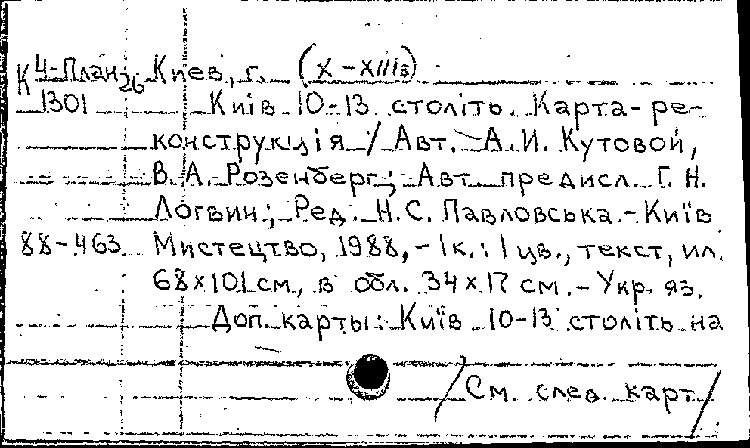 К 4-План 26 Киев, г. (X-XIIIв)
1301 Київ 10-13 століть. Карта-ре-
конструкція / Авт. А.И. Кутовой,
В.А. Розенберг; Авт предисл. Г.Н.
Логвин; Ред. Н.С. Павловська.- Київ
88-463 Мистецтво, 1988,-1к.: 1 цв., текст, ил.
68х101см., в обл. 34х17 см.- Укр. яз.
Доп. карты: Київ 10-13 століть на
/См. след. карт/